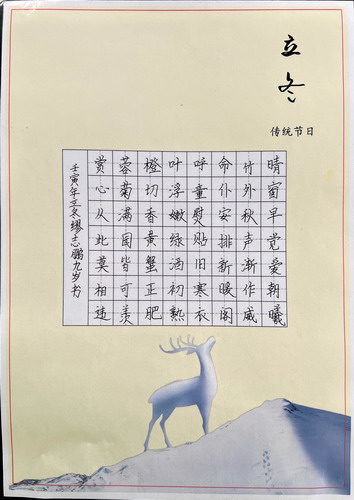 立冬
传统节日
晴窗早觉爱朝曦
竹外秋声渐作威
命仆安排新暖阁
呼童熨贴旧寒衣
叶浮嫩绿酒初熟
橙切香黄蟹正肥
蓉菊满园皆可羡
赏心从此莫相违
壬寅年立冬缪志鹏九岁书